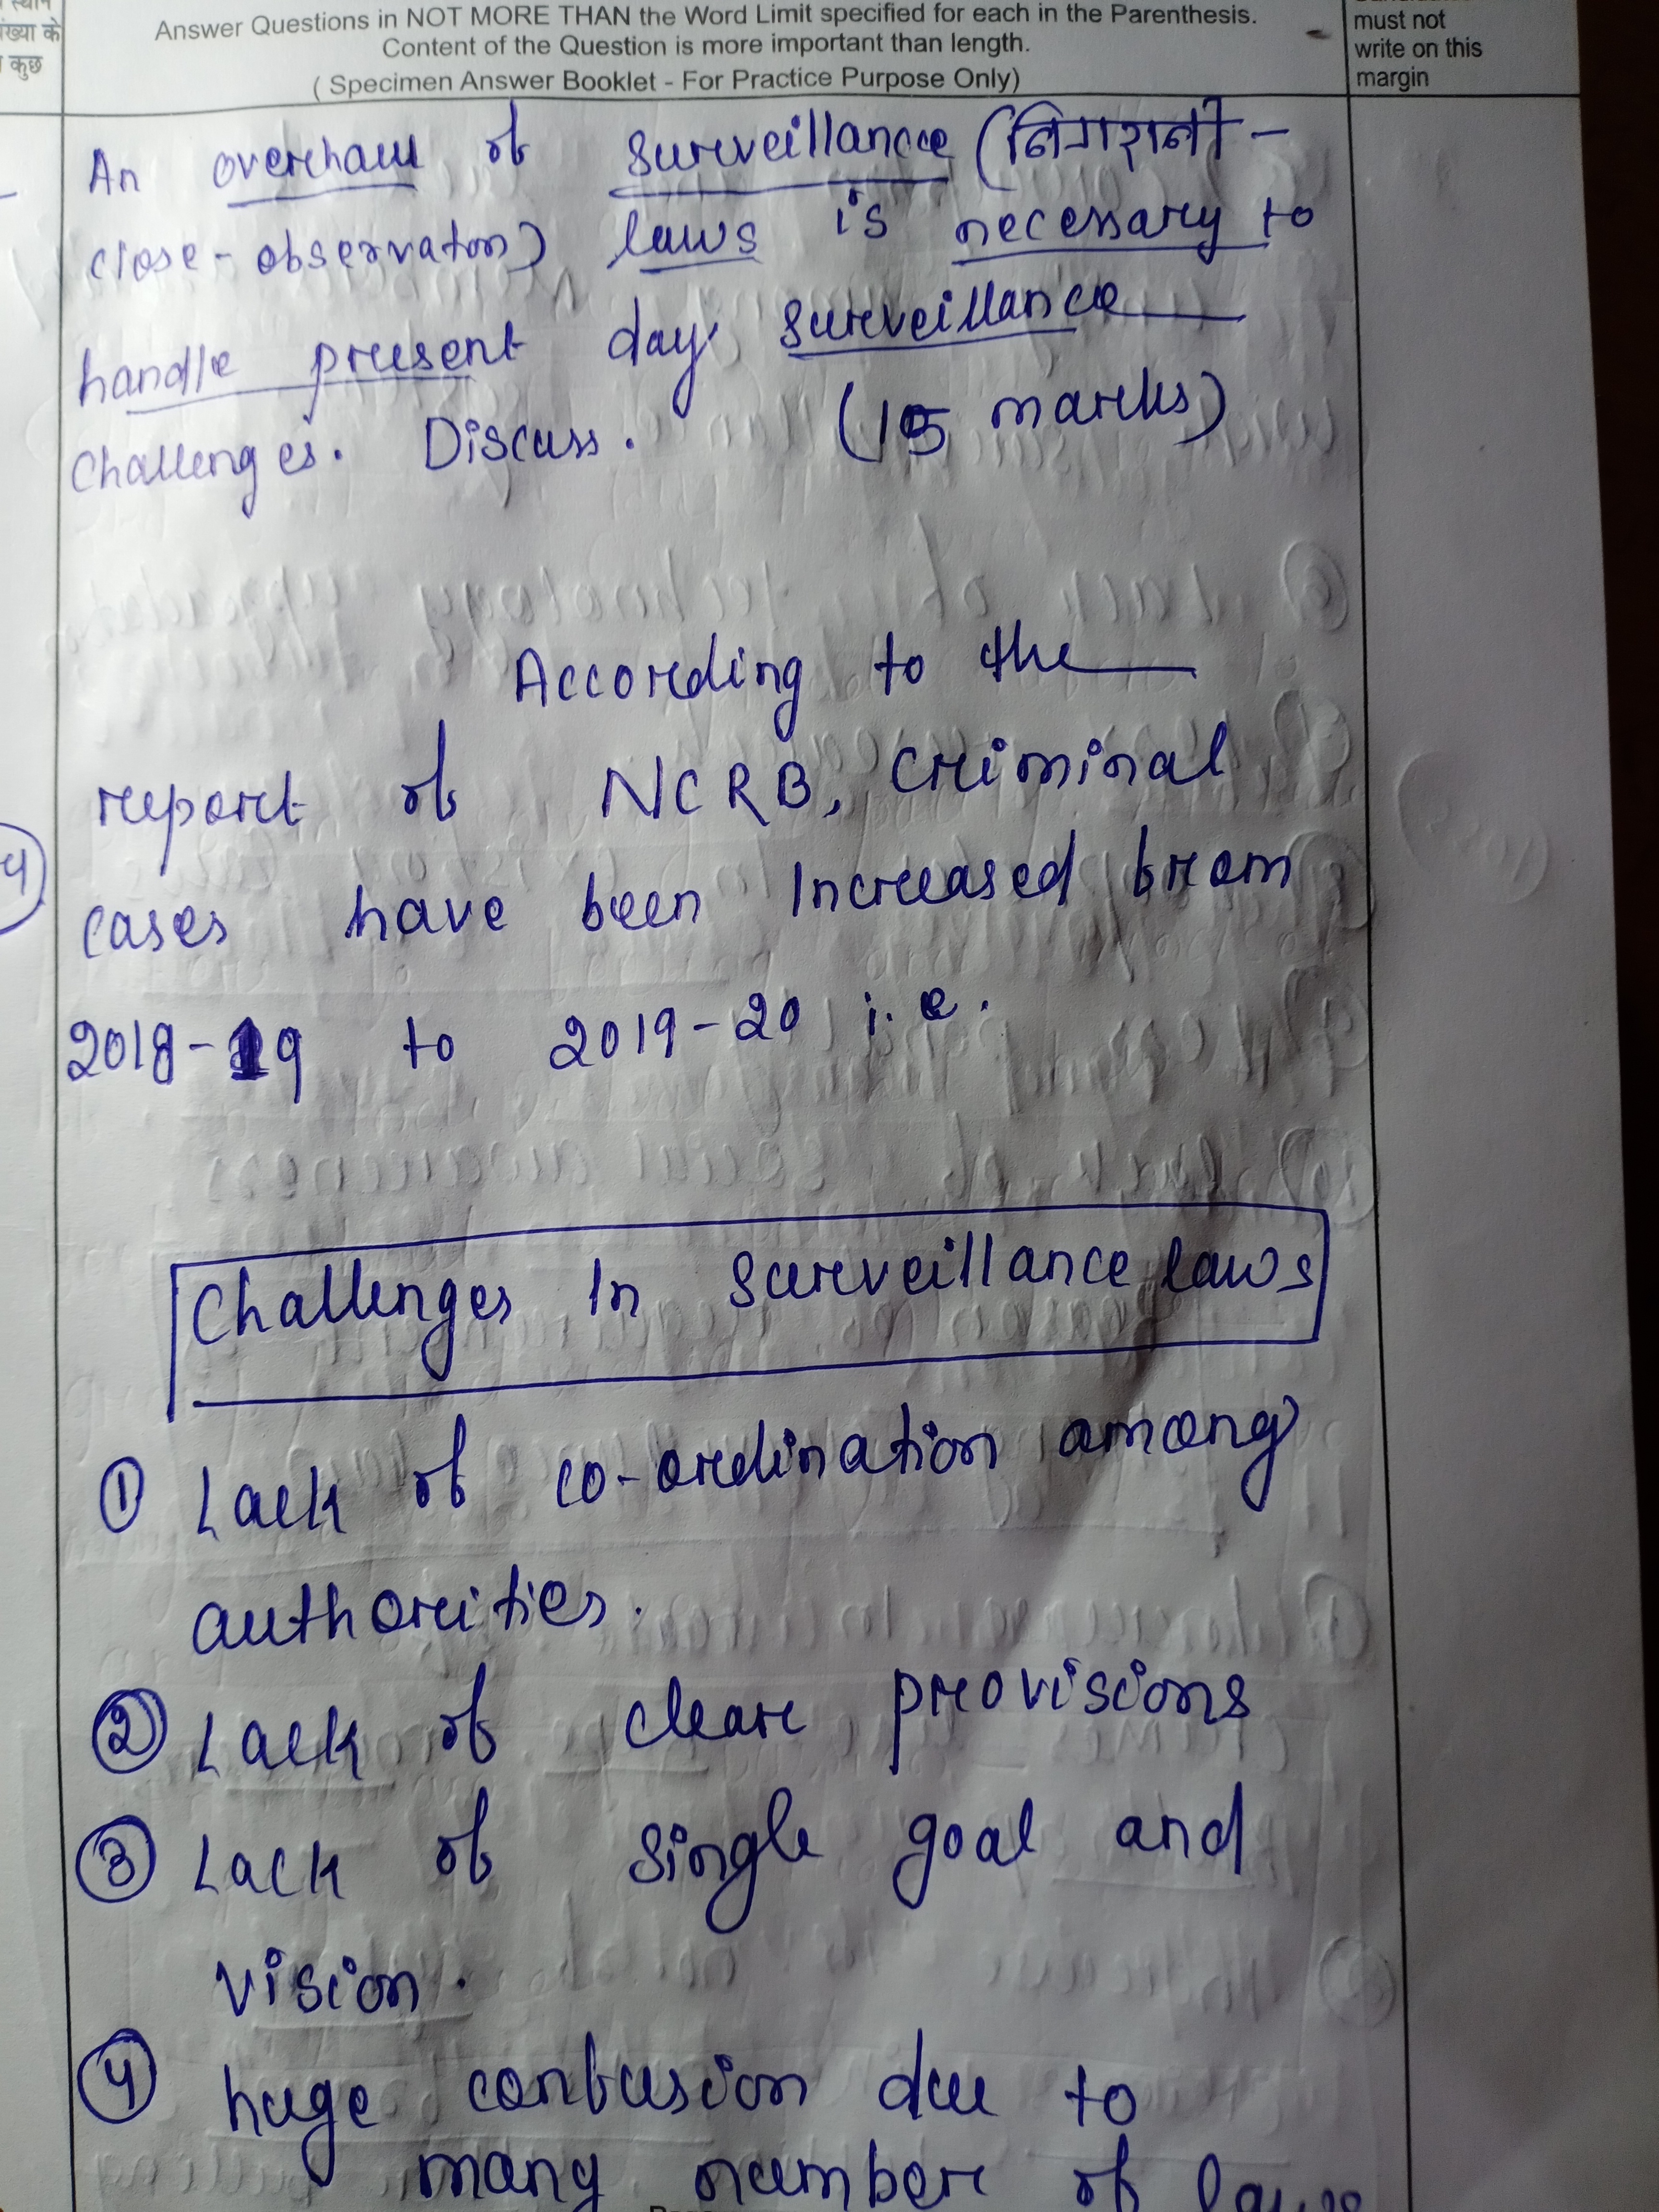 स्थान
संख्या के
कुछ
Answer Questions in NOT MORE THAN the Word Limit specified for each in the Parenthesis.
Content of the Question is more important than length.
( Specimen Answer Booklet - For Practice Purpose Only)
must not
write on this
margin
An overhaul of surveillance (निगरानी -
close-observaton) laws is necessary to
handle present day surveillance
challenges. Discuss. (15 marks)
According to the
report of NCRB, criminal
cases have been Increased from
2018-19 to 2019-20 i.e.
4
Challenges In surveillance laws
① Lack of co-ordination among
authorities.
② Lack of clear provisions
③ Lack of single goal and
vision.
④ huge confusion due to
many number of laws